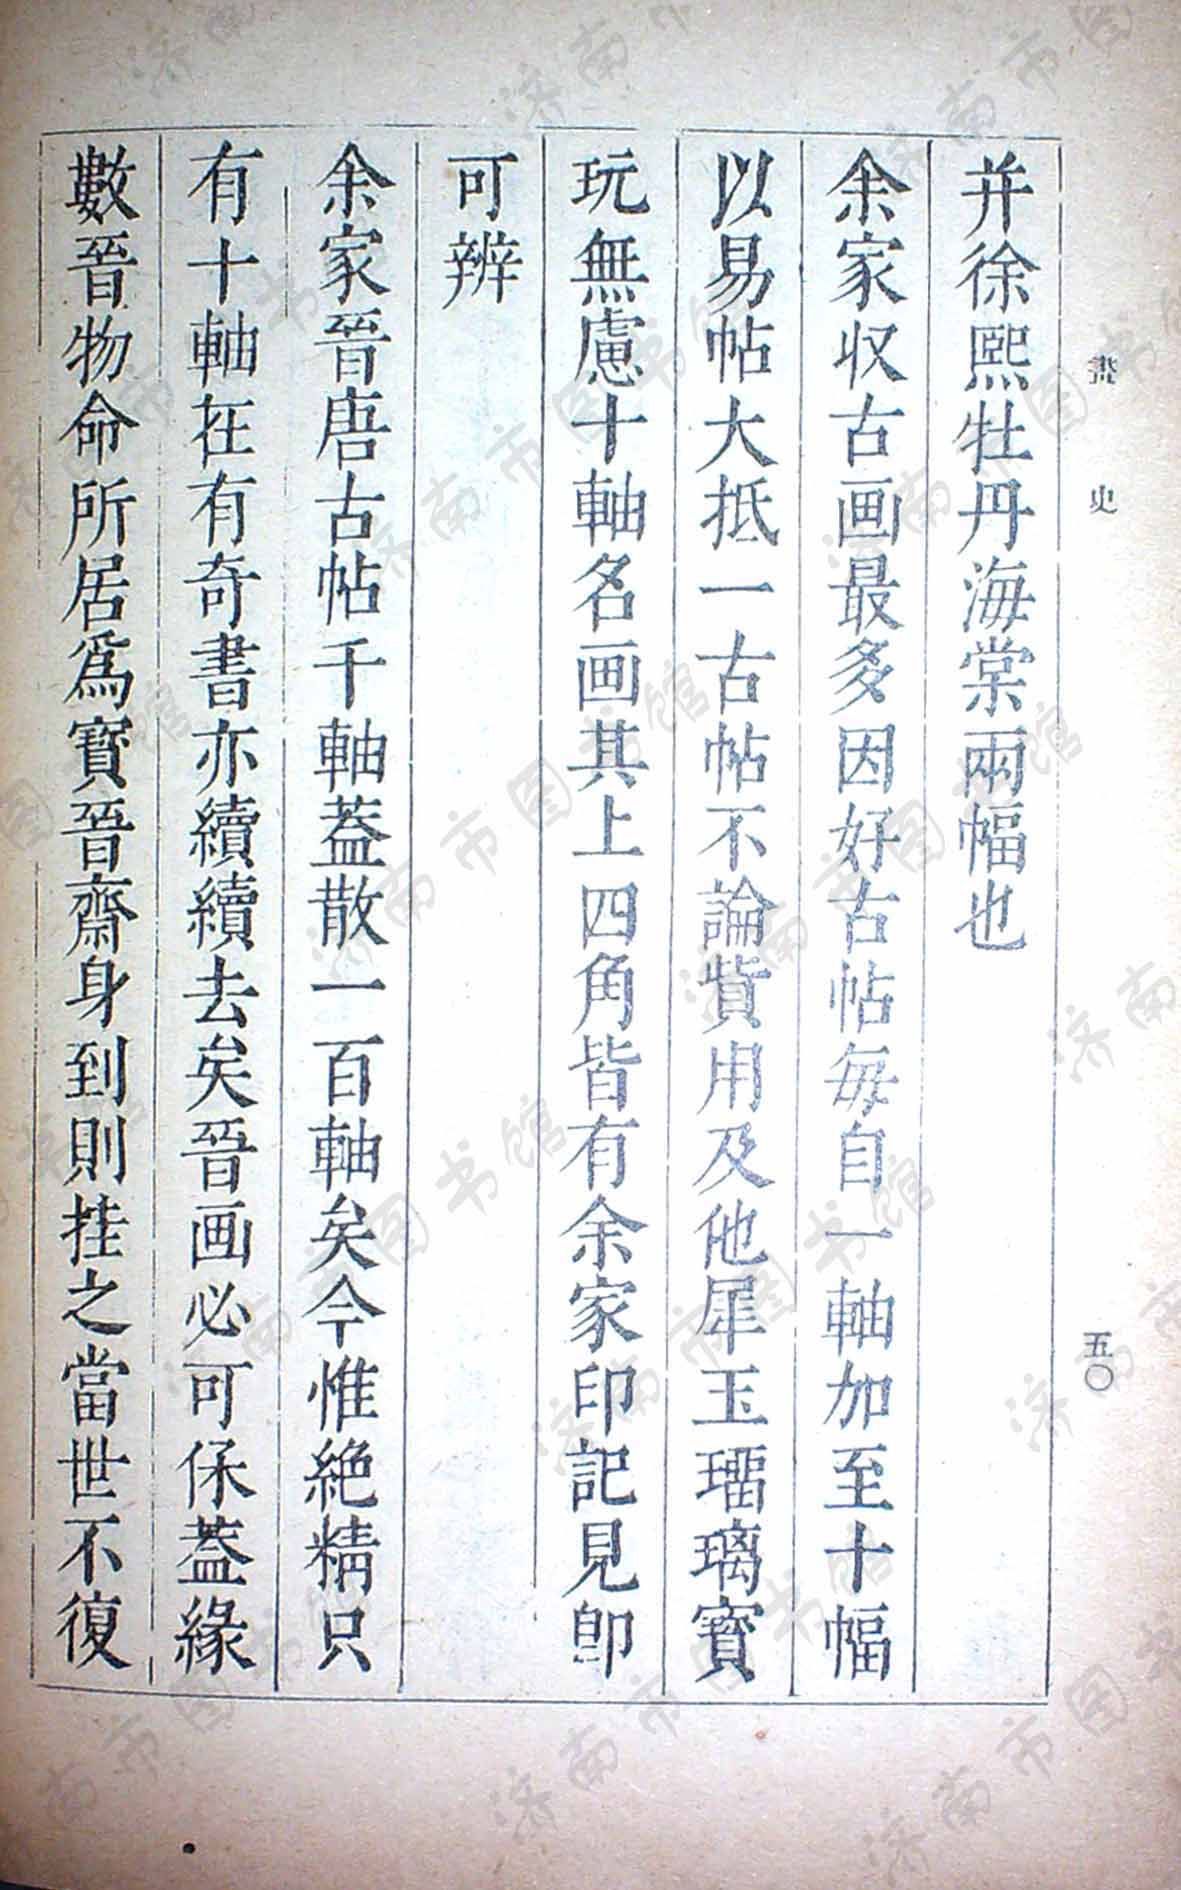 畫史
五〇
并徐熙牡丹海棠兩幅也
余家収古画最多因好古帖每自一軸加至十幅
以易帖大抵一古帖不論貲用及他犀玉瑠璃寶
玩無慮十軸名画其上四角皆有余家印記見卽
可辨
余家晉唐古帖千軸蓋散一百軸矣今惟絶精只
有十軸在有奇書亦續續去矣晉画必可保蓋緣
數晉物命所居爲寶晉齋身到則挂之當世不復
济南市图书馆